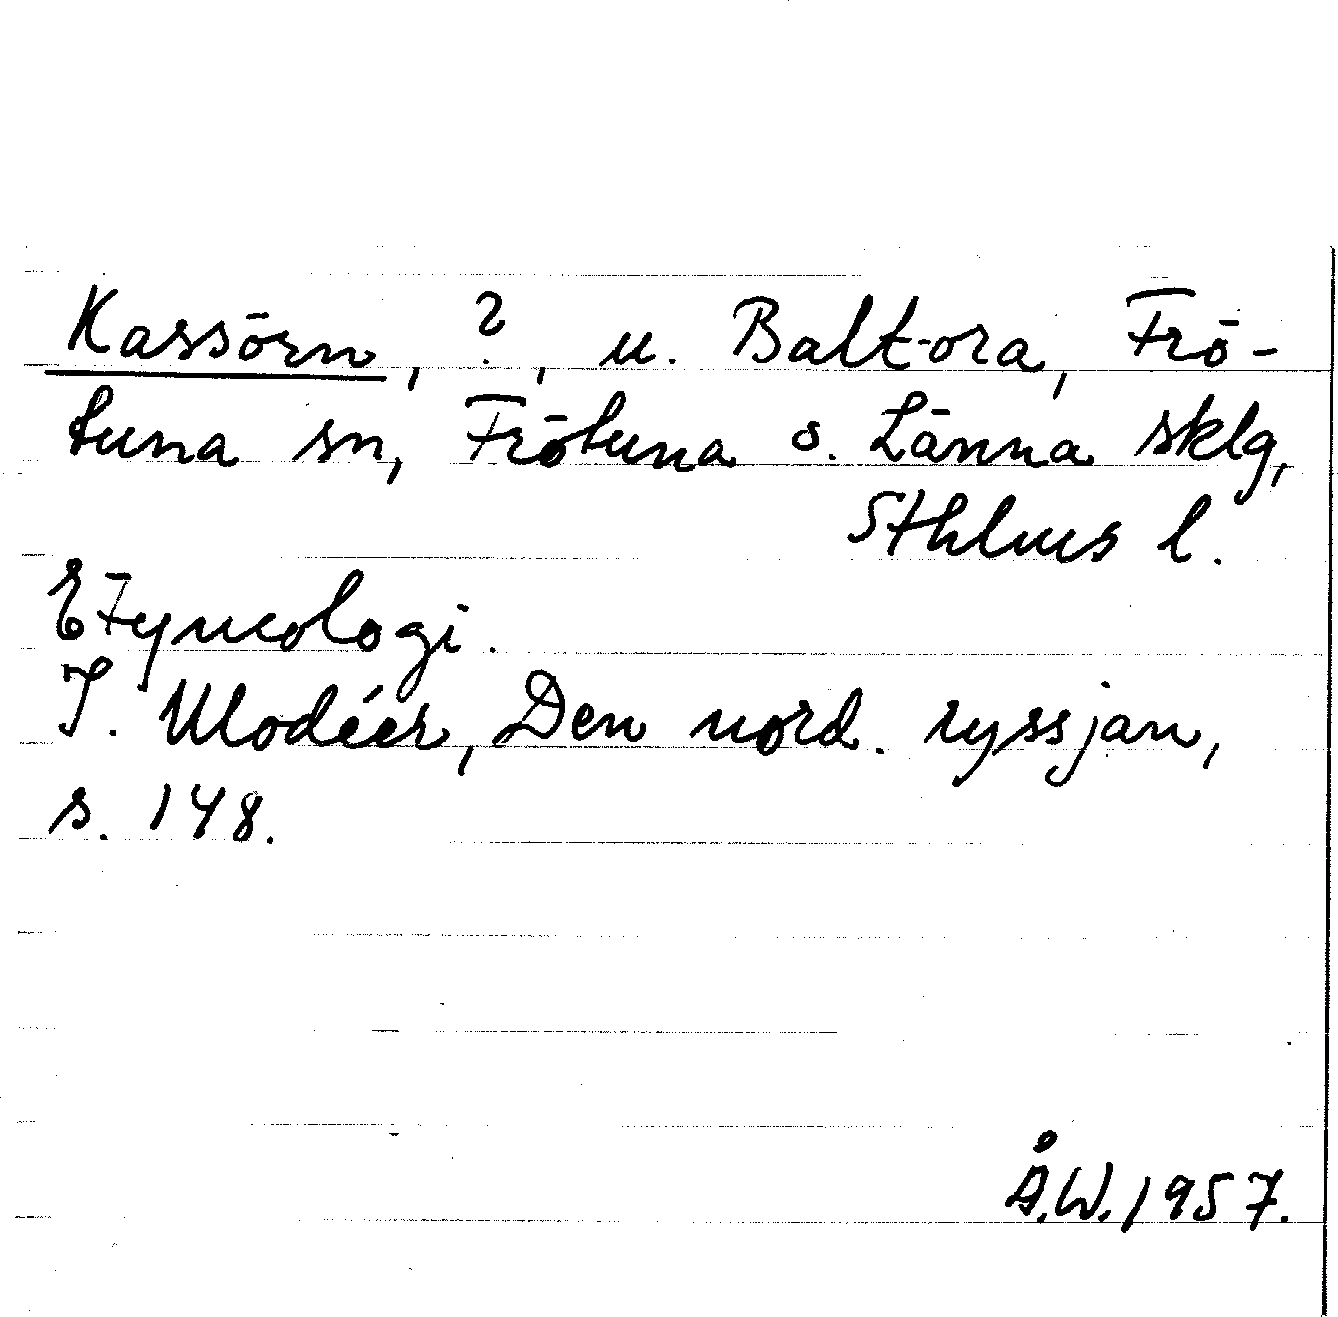 Kassörn, ?, u. Baltora, Frö-
tuna sn, Frötuna o. Länna sklg,
Sthlms l.
Etymologi.
I. Modéer, Den nord. ryssjan,
s. 148.
Å.W. 1957.